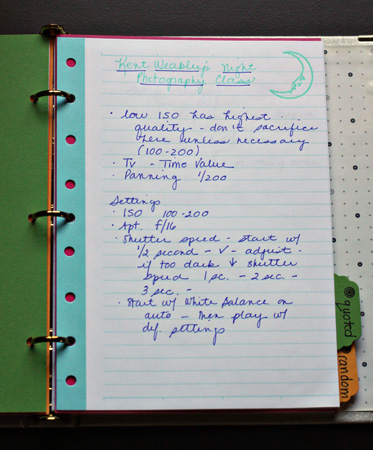 Kent Weakley's Night
Photography Class!
· Low ISO has highest
quality - don't sacrifice
here unless necessary
(100-200)
· Tv - Time Value
· Panning 1/200
Settings
· ISO 100-200
· Apt. f/16
· Shutter speed - start w/
1/2 second - √ - adjust
if too dark ↓ shutter
speed 1 sc. - 2 sec. -
3 sec. -
· Start w/ White balance on
auto - then play w/
def. settings
@quoted
random